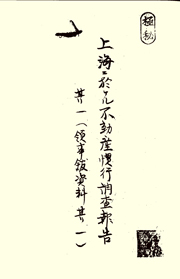 極秘
上海ニ於ケル不動産慣行調査報告
其一(領事館資料其一)